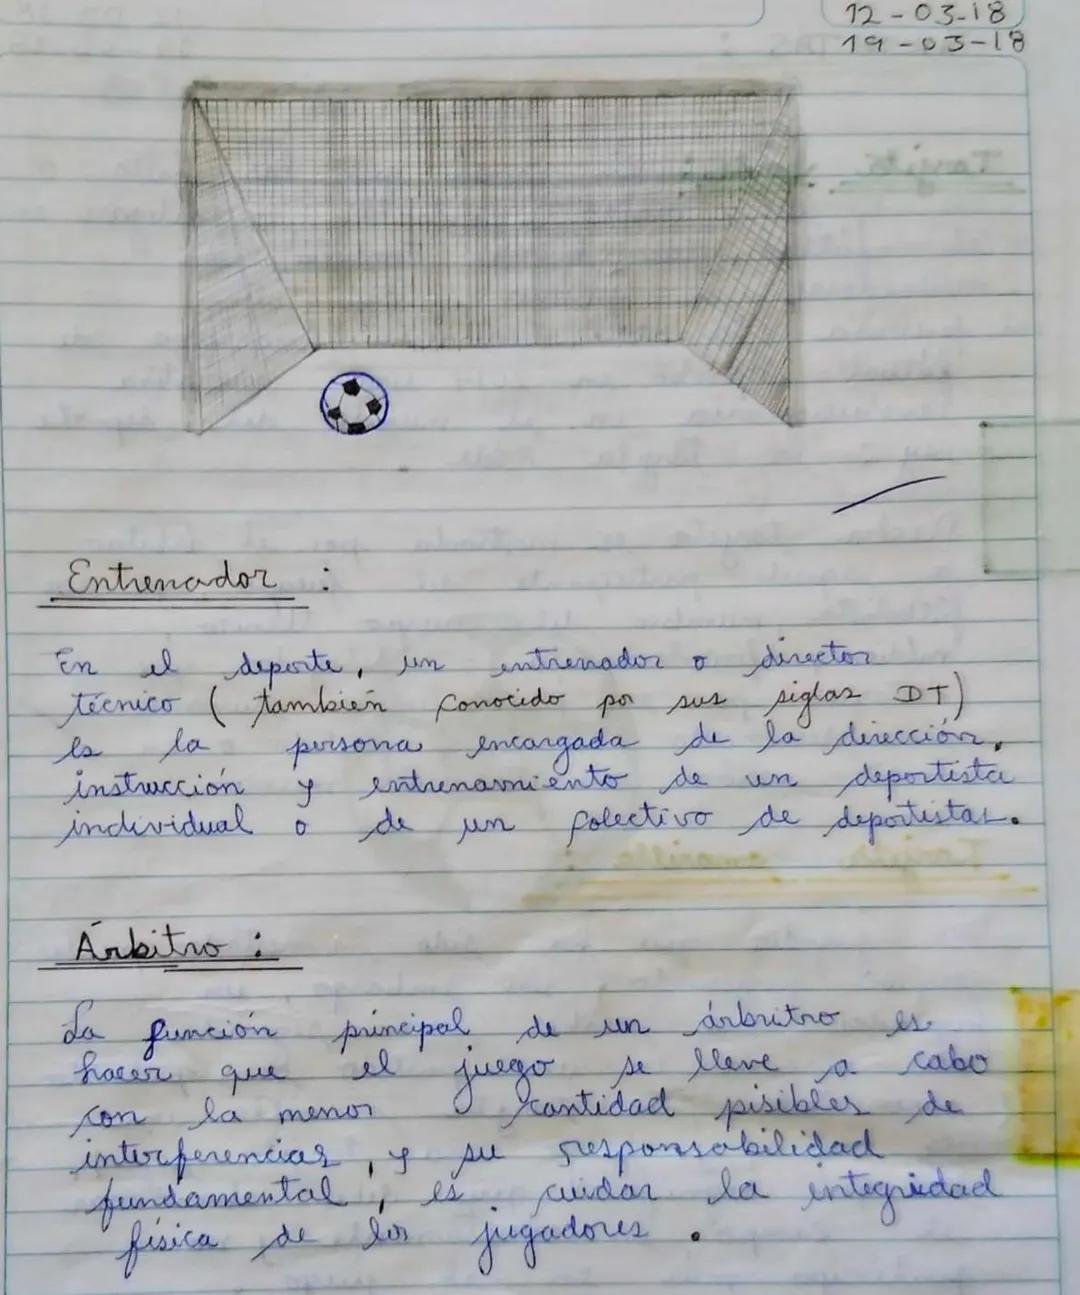 12-03-18
19-03-18
Entrenador :
En el deporte, un entrenador o director
técnico ( también conocido por sus siglas DT)
es la persona encargada de la dirección,
instrucción y entrenamiento de un deportista
individual o de un colectivo de deportistas.
Árbitro :
La función principal de un árbritro es
hacer que el juego se lleve a cabo
con la menor cantidad pisibles de
interferencias, y su responsabilidad
fundamental, es cuidar la integridad
física de los jugadores.